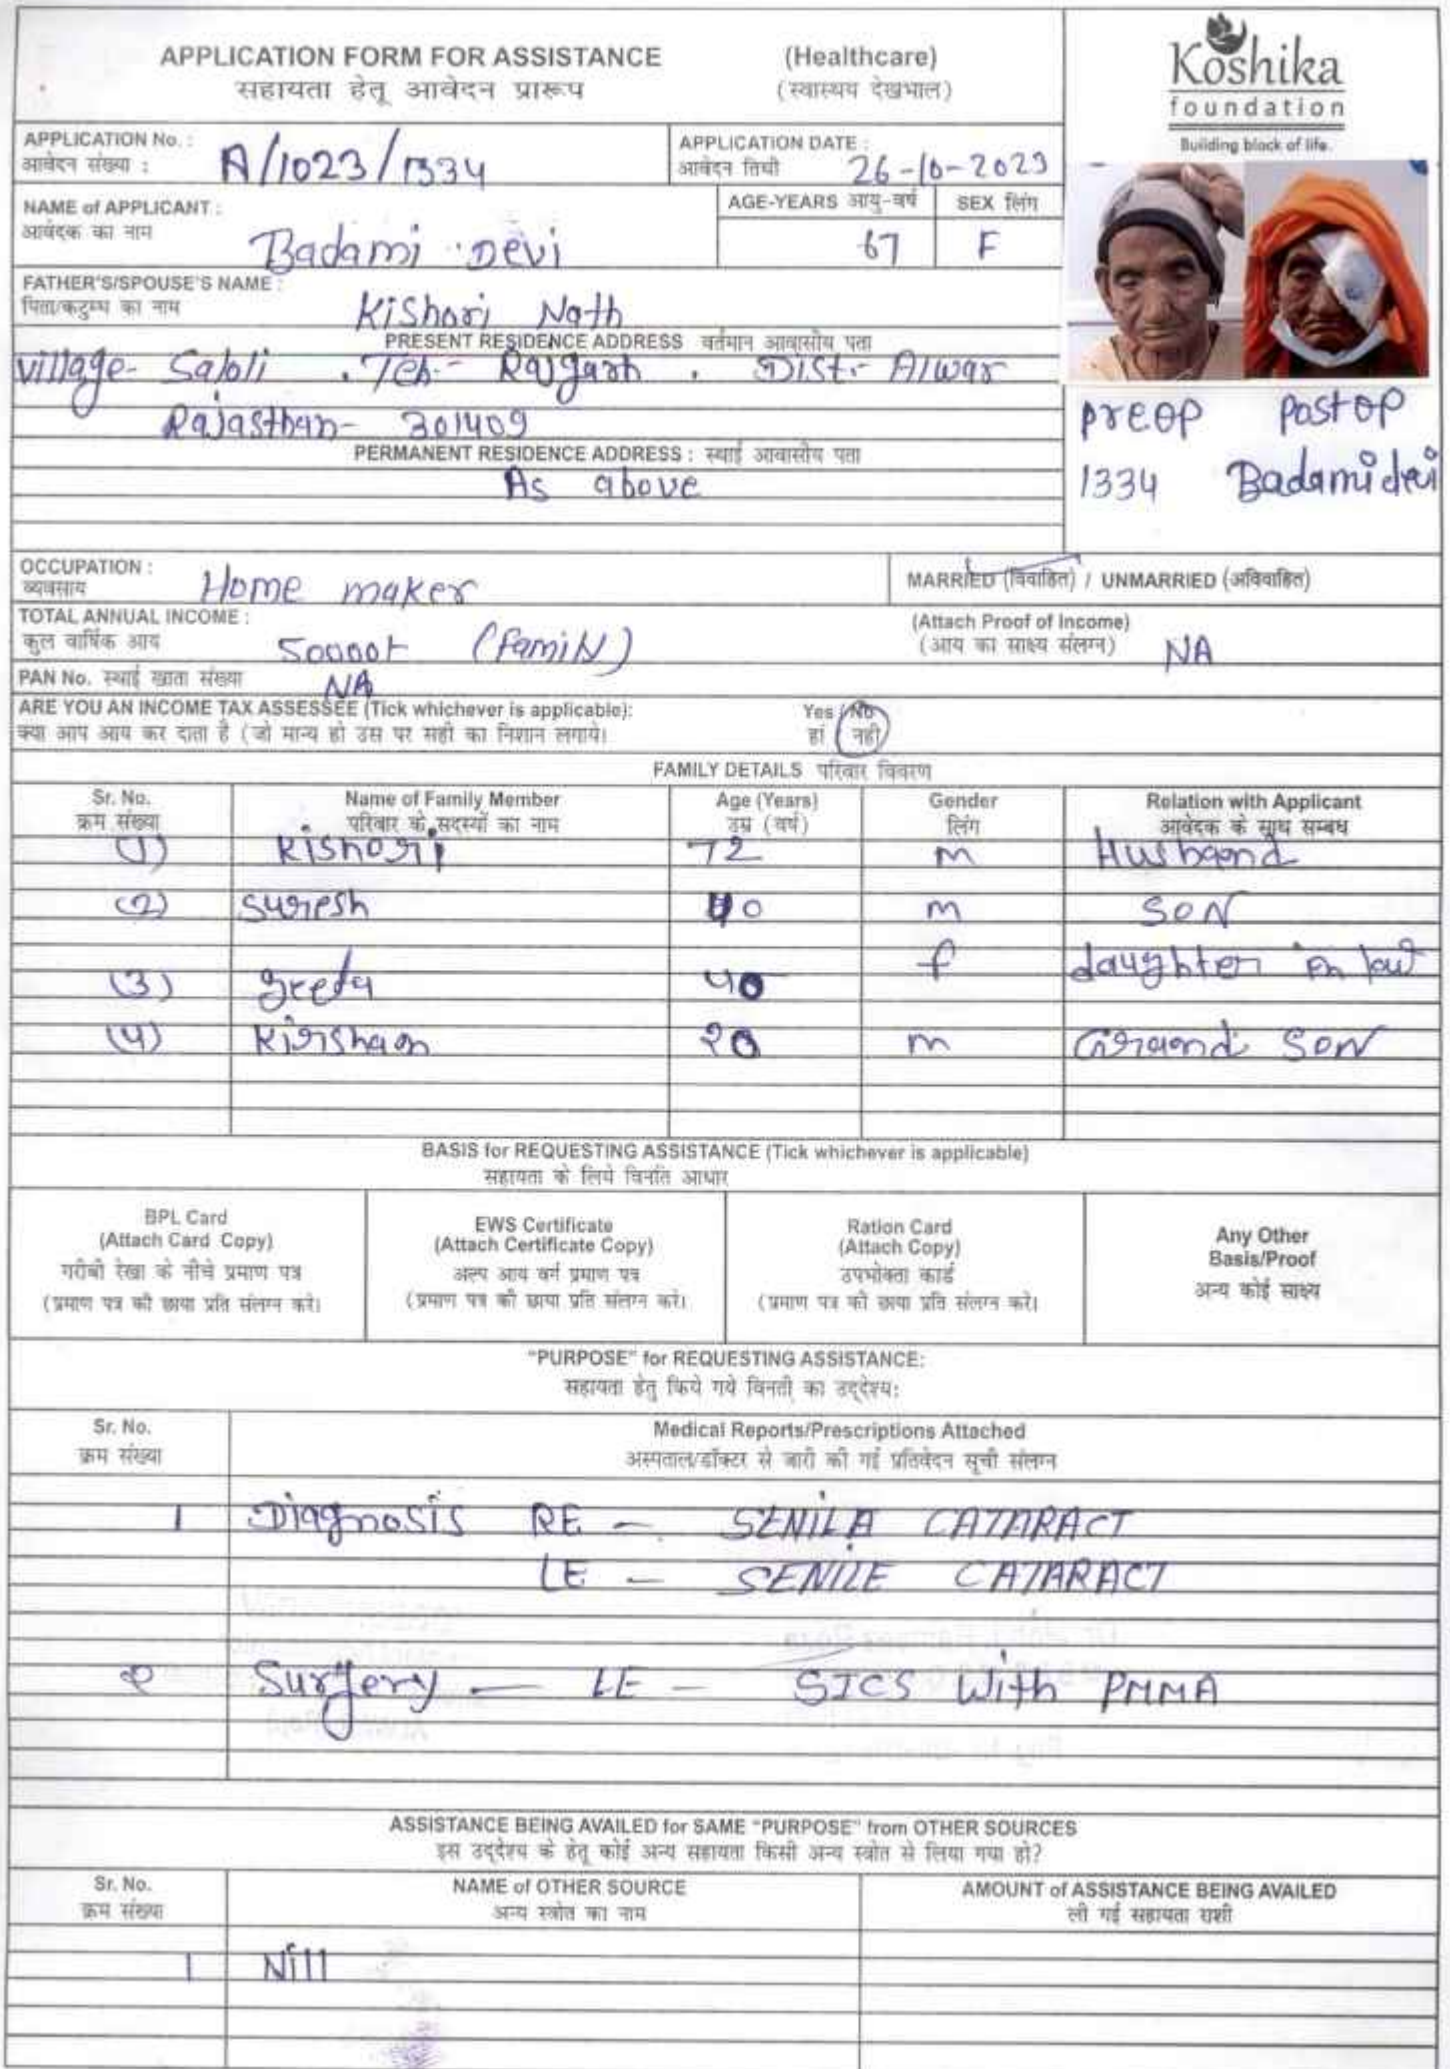 APPLICATION FORM FOR ASSISTANCE (Healthcare)
सहायता हेतू आवेदन प्रारूप (स्वास्थय देखभाल)
Koshika
foundation
Building block of life.
APPLICATION No. : A/1023/1334
आवेदन संख्या :
APPLICATION DATE : 26-10-2023
आवेदन तिथी
NAME of APPLICANT : Badami Devi
आवेदक का नाम
AGE-YEARS आयु-वर्ष 67
SEX लिंग F
FATHER'S/SPOUSE'S NAME : Kishori Nath
पिता/कटुम्ब का नाम
PRESENT RESIDENCE ADDRESS वर्तमान आवासीय पता
Village- Saloli . Teh- Rajgarh . Dist- Alwar
Rajasthan- 301409
PERMANENT RESIDENCE ADDRESS : स्थाई आवासीय पता
As above
preop postop
1334 Badami devi
OCCUPATION : Home maker
व्यवसाय
MARRIED (विवाहित) / UNMARRIED (अविवाहित)
TOTAL ANNUAL INCOME : (Attach Proof of Income)
कुल वार्षिक आय (Family) (आय का साक्ष्य संलग्न) NA
PAN No. स्थाई खाता संख्या NA
ARE YOU AN INCOME TAX ASSESSEE (Tick whichever is applicable): Yes / No
क्या आप आय कर दाता है (जो मान्य हो उस पर सही का निशान लगाये। हां नही
FAMILY DETAILS परिवार विवरण
Sr. No. Name of Family Member Age (Years) Gender Relation with Applicant
क्रम संख्या परिवार के सदस्यों का नाम उम्र (वर्ष) लिंग आवेदक के साथ सम्बध
(1) Kishori 72 M Husband
(2) Suresh 40 M SON
(3) geeta 40 f daughter in law
(4) Kirshan 20 m Grand SON
BASIS for REQUESTING ASSISTANCE (Tick whichever is applicable)
सहायता के लिये विनति आधार
BPL Card
(Attach Card Copy)
गरीबी रेखा के नीचे प्रमाण पत्र
(प्रमाण पत्र की छाया प्रति संलग्न करे।
EWS Certificate
(Attach Certificate Copy)
अल्प आय वर्ग प्रमाण पत्र
(प्रमाण पत्र की छाया प्रति संलग्न करे।
Ration Card
(Attach Copy)
उपभोक्ता कार्ड
(प्रमाण पत्र की छाया प्रति संलग्न करे।
Any Other
Basis/Proof
अन्य कोई साक्ष्य
"PURPOSE" for REQUESTING ASSISTANCE:
सहायता हेतु किये गये विनती का उद्देश्य:
Sr. No. Medical Reports/Prescriptions Attached
क्रम संख्या अस्पताल/डॉक्टर से जारी की गई प्रतिवेदन सूची संलग्न
1 Diagnosis RE - SENILA CATARACT
LE - SENILE CATARACT
2 Surgery - LE - SICS With PMMA
ASSISTANCE BEING AVAILED for SAME "PURPOSE" from OTHER SOURCES
इस उद्देश्य के हेतू कोई अन्य सहायता किसी अन्य स्त्रोत से लिया गया हो?
Sr. No. NAME of OTHER SOURCE AMOUNT of ASSISTANCE BEING AVAILED
क्रम संख्या अन्य स्त्रोत का नाम ली गई सहायता राशी
1 Nill